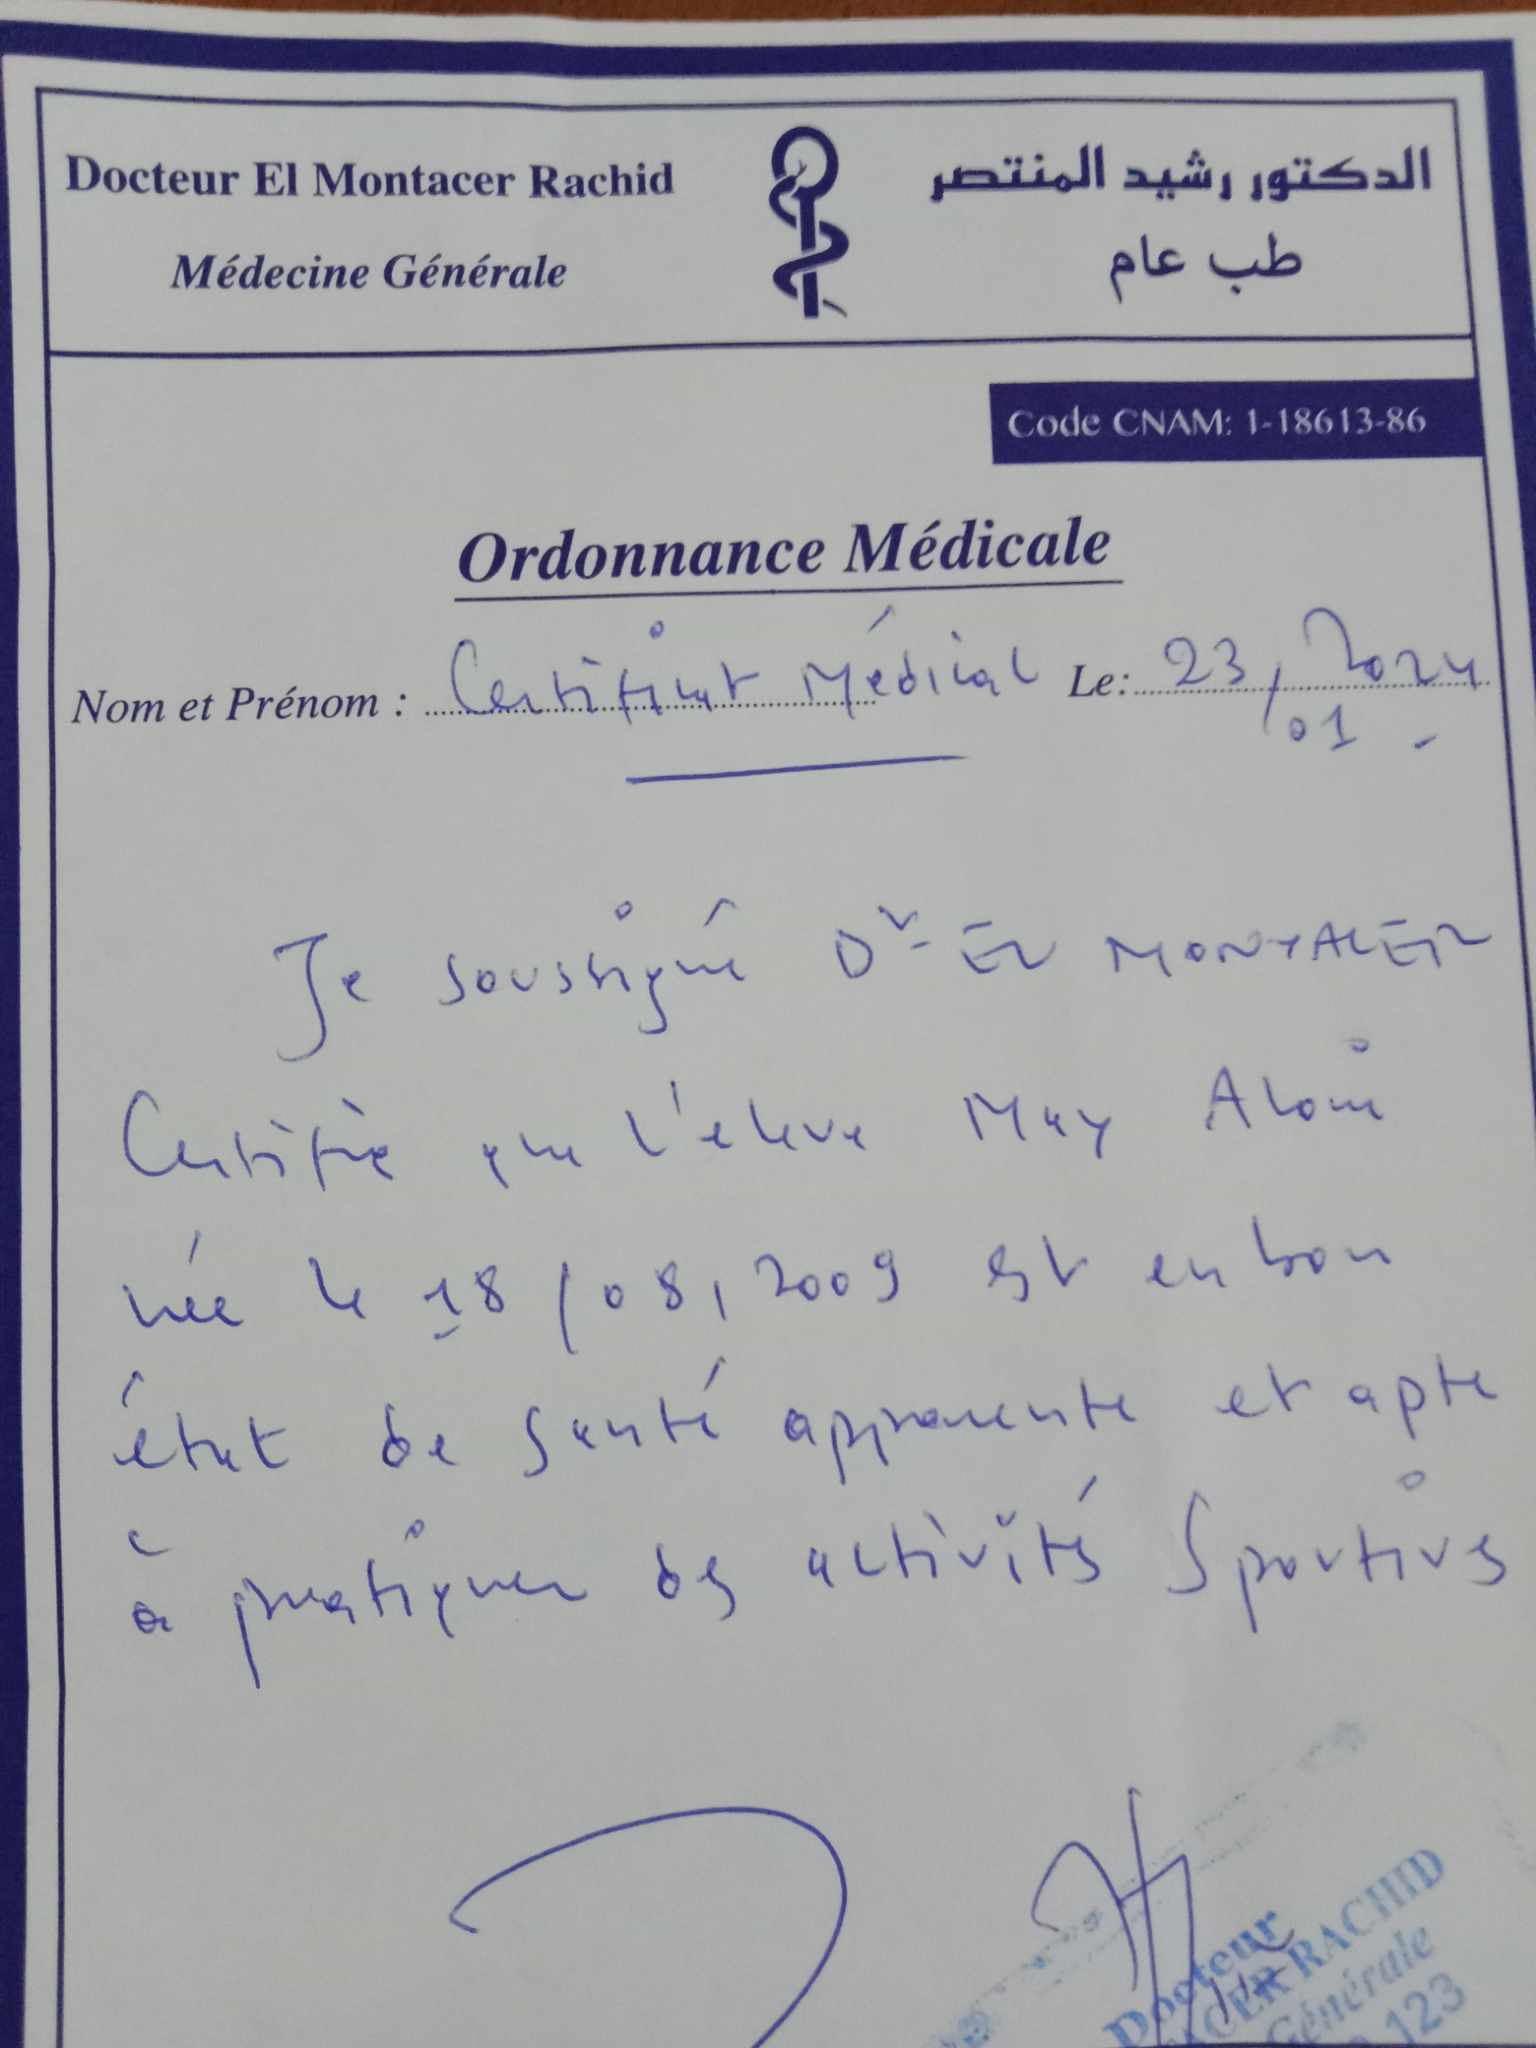 Docteur El Montacer Rachid
Médecine Générale
الدكتور رشيد المنتصر
طب عام
Code CNAM: 1-18613-86
Ordonnance Médicale
Nom et Prénom : Certificat Médical Le: 23/01/2024
Je soussigné Dr EL MONTACER
Certifie que l'eleve May Aloui
née le 18/08/2009 est en bon
état de Santé apparente et apte
à pratiquer des activités Sportives
Docteur
ACER RACHID
Générale
123